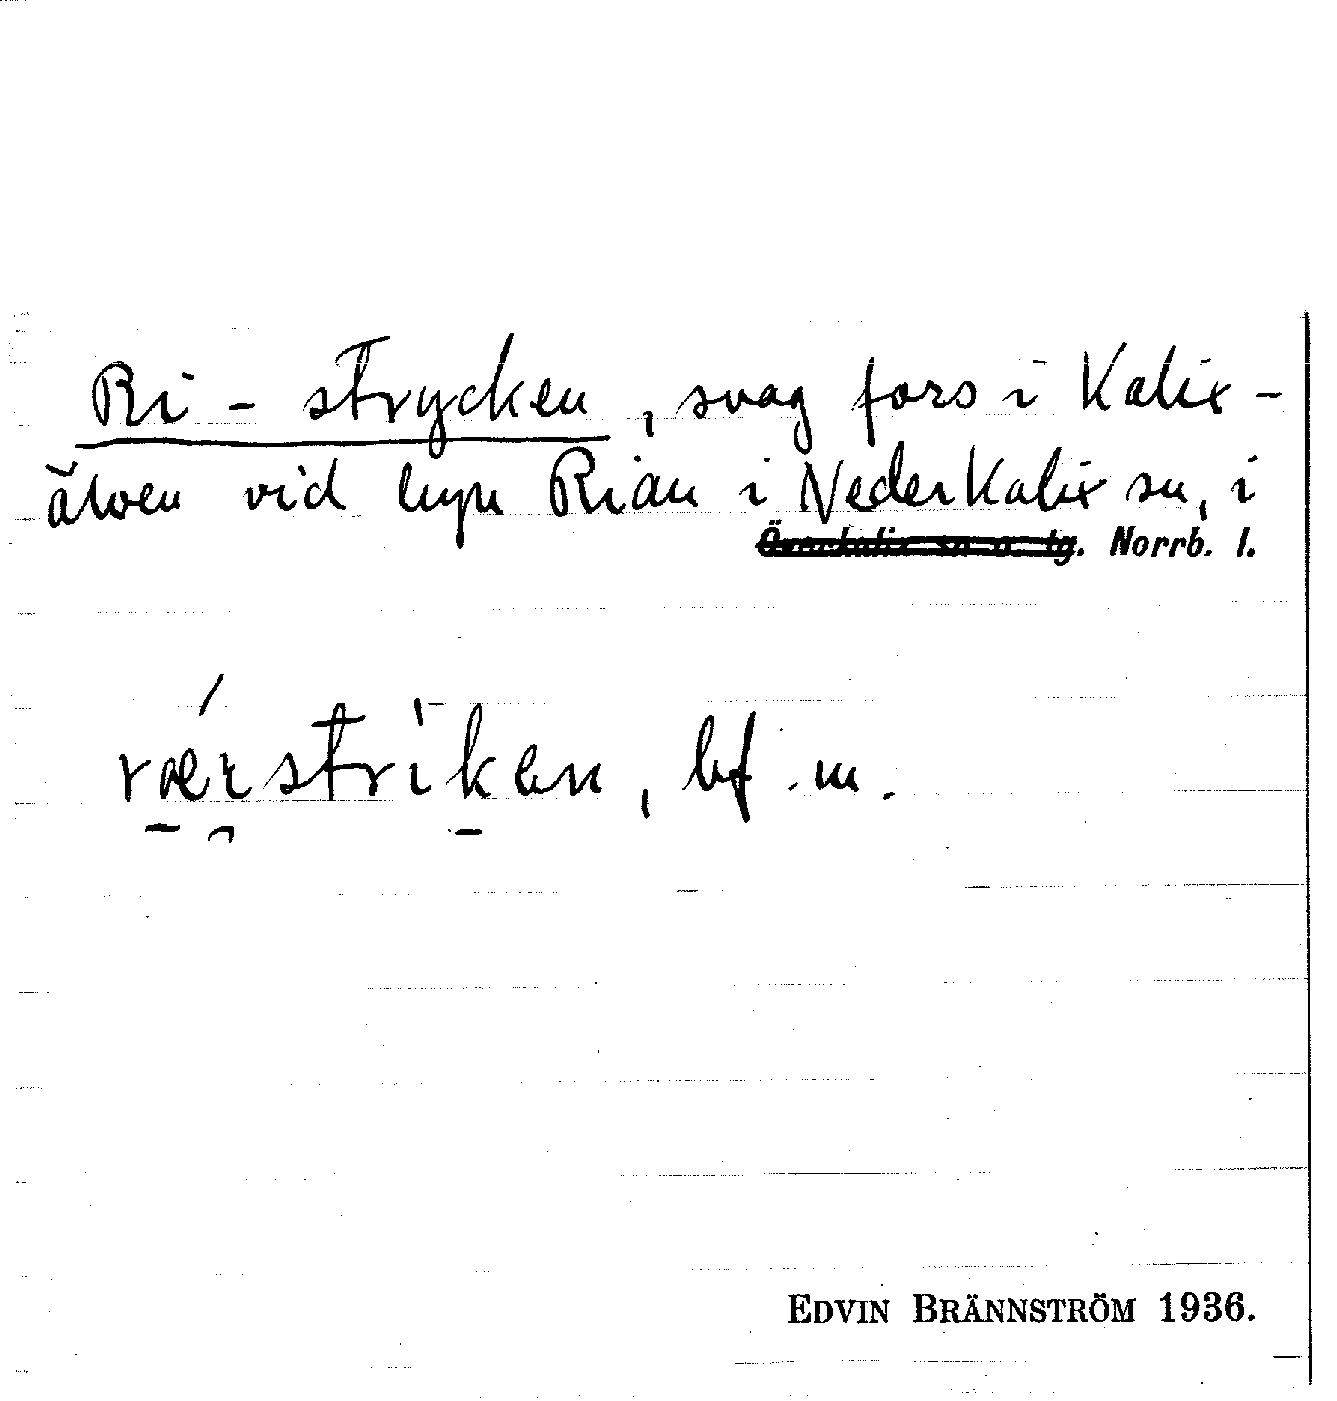 Ri - strycken, svag fors i Kalix-
älven vid lnpn Rian i Nederkalix sn, i
Överkalix sn o. tg. Norrb. l.
rærstriken, bf. m.
EDVIN BRÄNNSTRÖM 1936.